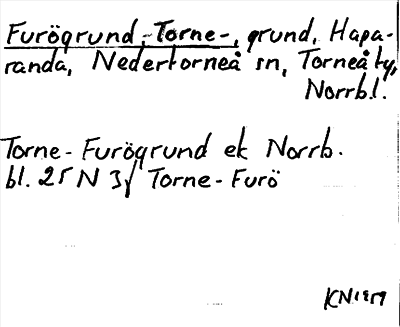 Furögrund, Torne-, grund, Hapa-
randa, Nedertorneå sn, Torneå ty,
Norrb.l.
Torne-Furögrund ek Norrb.
bl. 25 N 3j Torne-Furö